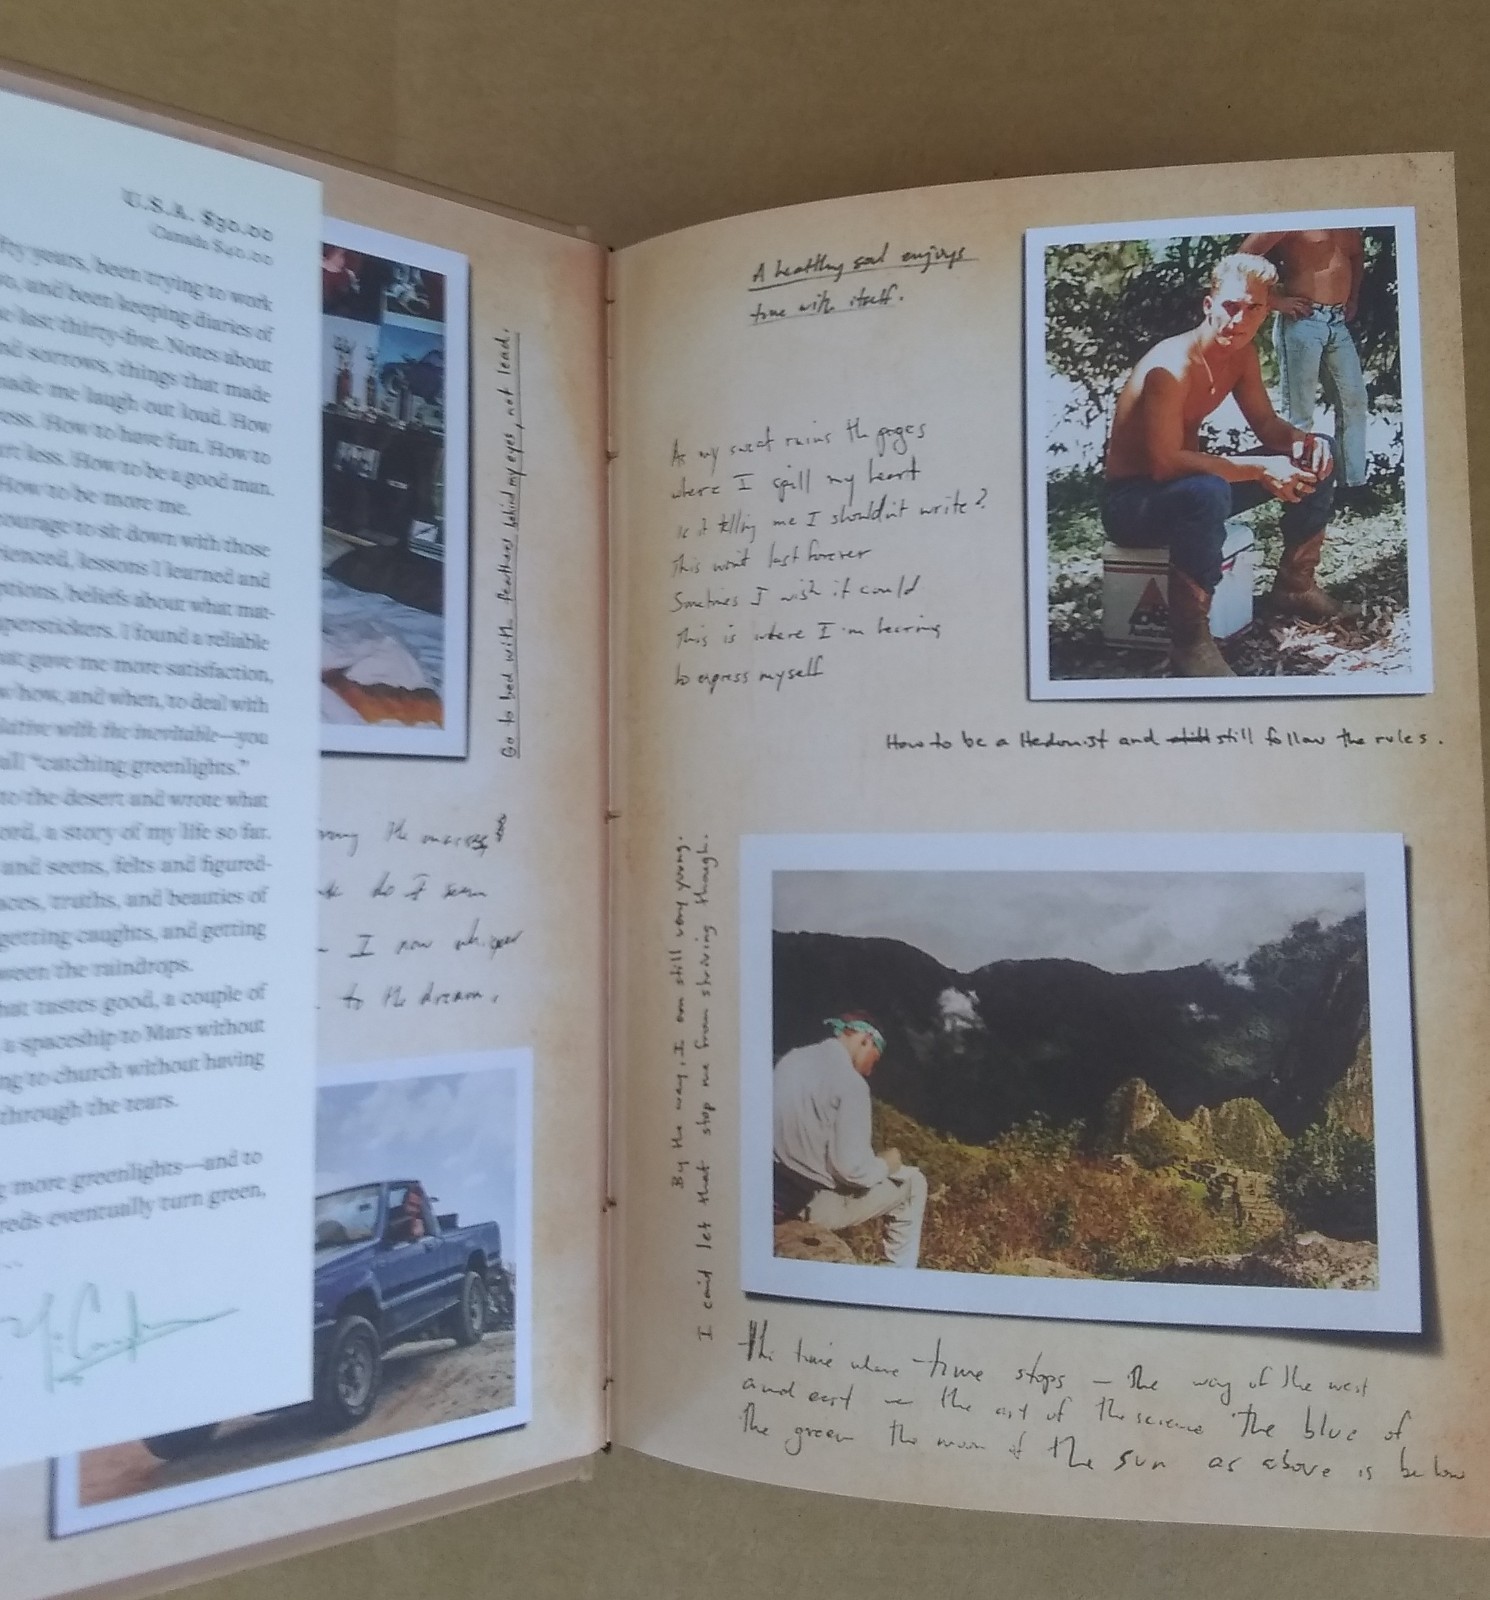 U.S.A. $30.00
Canada $40.00
fty years, been trying to work
and been keeping diaries of
e last thirty-five. Notes about
nd sorrows, things that made
made me laugh out loud. How
ess. How to have fun. How to
urt less. How to be a good man.
How to be more me.
courage to sit down with those
rienced, lessons I learned and
ptions, beliefs about what mat-
perstickers. I found a reliable
hat gave me more satisfaction,
w how, and when, to deal with
lative with the inevitable—you
all "catching greenlights."
to the desert and wrote what
ord, a story of my life so far.
and seens, felts and figured-
aces, truths, and beauties of
getting caughts, and getting
ween the raindrops.
hat tastes good, a couple of
a spaceship to Mars without
ng to church without having
through the tears.
g more greenlights—and to
reds eventually turn green,
Go to bed with feathers behind my eyes, not lead.
the
do I seem
I now whisper
to the dream.
A healthy soul enjoys
time with itself.
As my sweat ruins the pages
where I spill my heart
is it telling me I shouldn't write?
This won't last forever
Sometimes I wish it could
This is where I'm learning
to express myself
How to be a Hedonist and still still follow the rules.
By the way, I am still very young.
I can't let that stop me from striving though.
This time where time stops — the way of the west
and east the art of the science the blue of
the green the moon of the sun as above is below